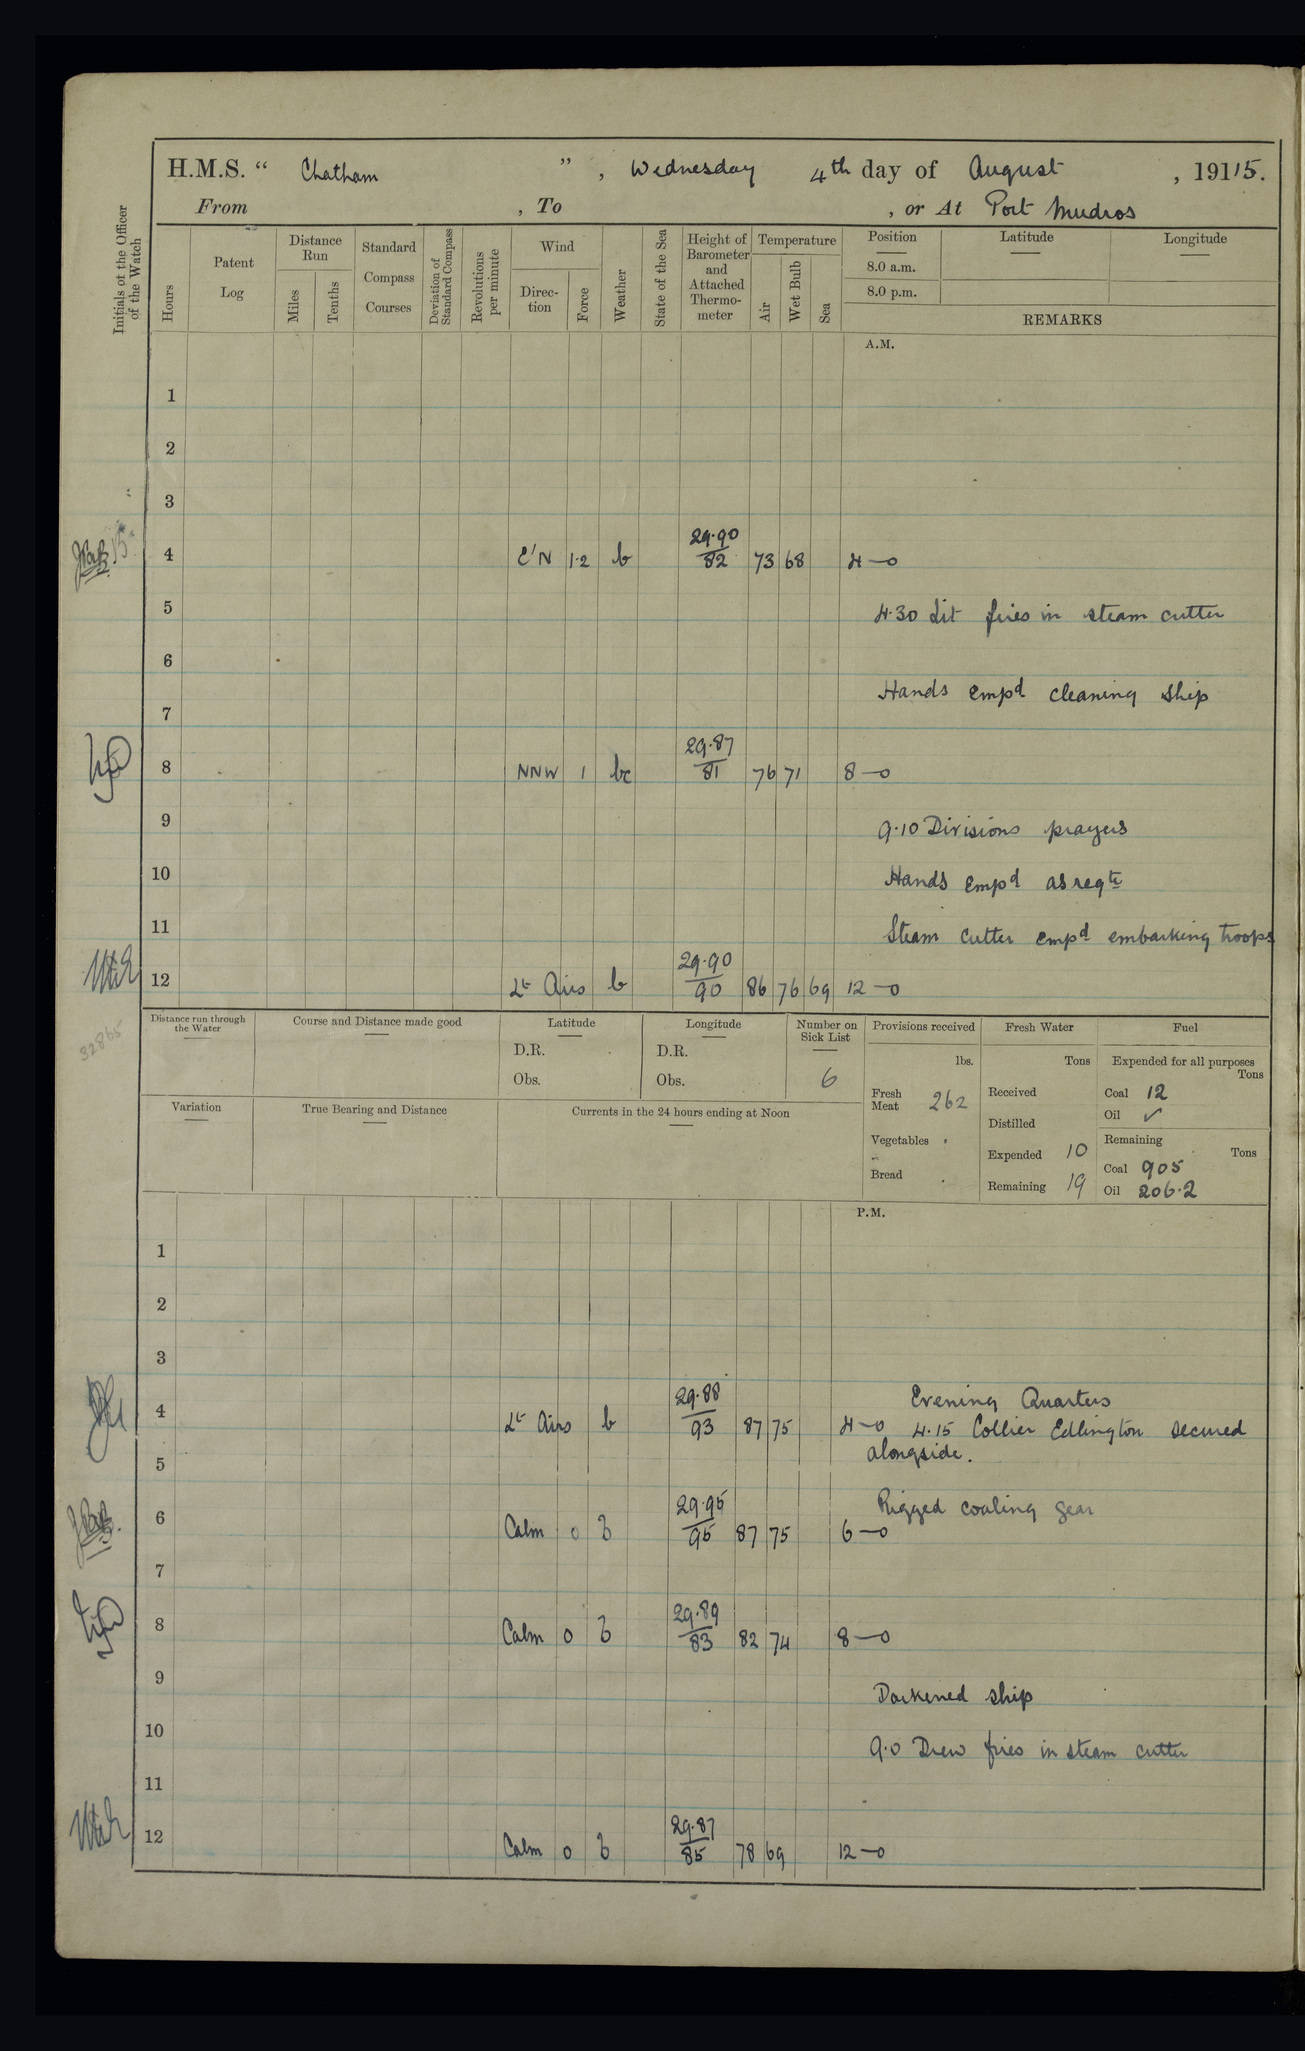 H.M.S. “ Chatham ” , Wednesday 4th day of August , 19115.
From , To , or At Port Mudros
Initials of the Officer of the Watch
Hours
Patent Log
Distance Run
Miles
Tenths
Standard Compass Courses
Deviation of Standard Compass
Revolutions per minute
Wind
Direc-tion
Force
Weather
State of the Sea
Height of Barometer and Attached Thermo-meter
Temperature
Air
Wet Bulb
Sea
Position
8.0 a.m.
8.0 p.m.
Latitude
Longitude
REMARKS
A.M.
1
2
3
29.90
4 E'N 1.2 b 82 73 68 4—0
5 4.30 Lit fires in steam cutter
6
Hands empd cleaning ship
7
29.87
8 NNW 1 bc 81 76 71 8—0
9 9.10 Divisions prayers
10 Hands empd as reqte
11 Steam cutter empd embarking troops
29.90
12 Lt Airs b 90 86 76 69 12—0
32865
Distance run through the Water
Course and Distance made good
Latitude
D.R.
Obs.
Longitude
D.R.
Obs.
Number on Sick List
6
Provisions received
lbs.
Fresh Meat 262
Vegetables
Bread
Fresh Water
Tons
Received
Distilled
Expended 10
Remaining 19
Fuel
Expended for all purposes
Tons
Coal 12
Oil ✓
Remaining
Tons
Coal 905
Oil 206.2
Variation
True Bearing and Distance
Currents in the 24 hours ending at Noon
P.M.
1
2
3
29.88 Evening Quarters
4 Lt Airs b 93 87 75 4—0 4.15 Collier Edlington secured
5 alongside.
29.95 Rigged coaling gear
6 Calm 0 b 95 87 75 6—0
7
29.89
8 Calm 0 b 83 82 74 8—0
9 Darkened ship
10 9.0 Drew fires in steam cutter
11
29.87
12 Calm 0 b 85 78 69 12—0